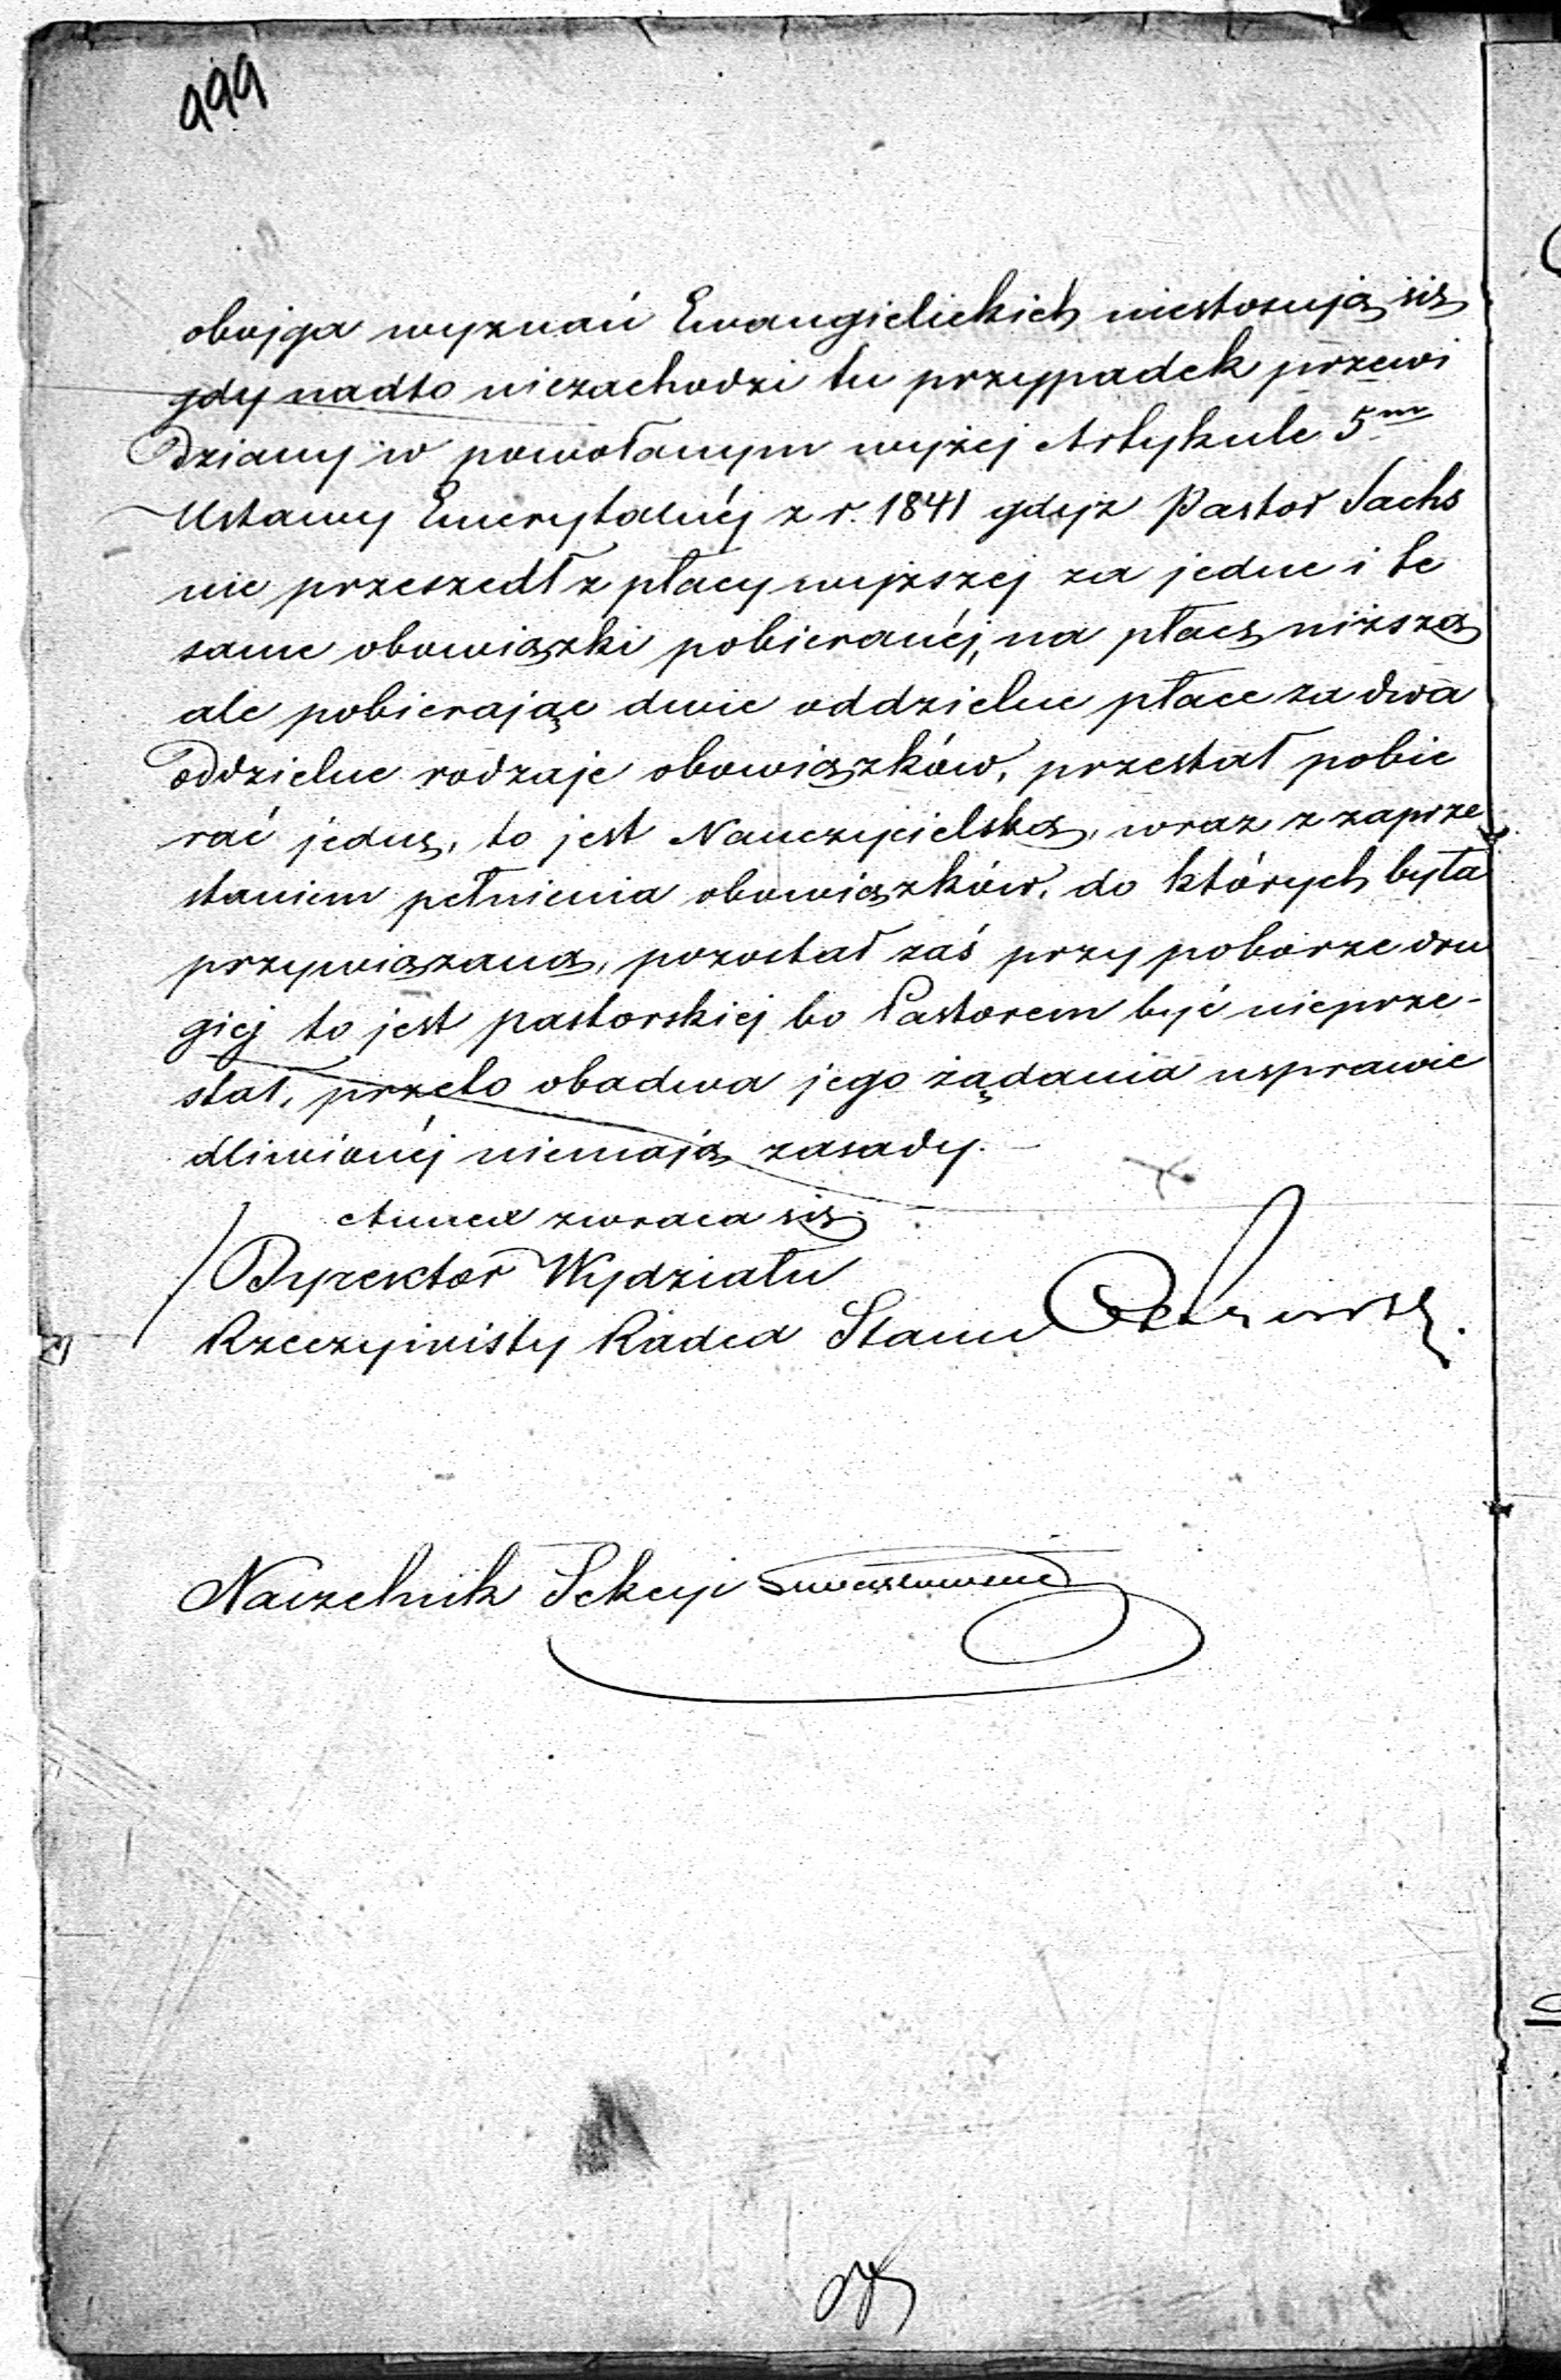 999
obojga wyznań Ewangielickich niestosują się
gdy nadto niezachodzi tu przypadek przewi
dziany w powołanym wyżej Artykule 5m
Ustawy Emerytalnéj z r. 1841 gdyż Pastor Sachs
nie przeszedł z płacy wyższej za jedne i te
same obowiązki pobieranéj, na płacę niższą
ale pobierając dwie oddzielne płace za dwa
oddzielne rodzaje obowiązków, przestał pobie
rać jedną, to jest Nauczycielską, wraz z zaprze
staniem pełnienia obowiązków, do których była
przywiązana, pozostał zaś przy poborze dru
giej to jest pastorskiej bo Pastorem być nieprze-
stał, przeto obadwa jego żądania usprawie
dliwionéj niemają zasady.
Annex zwraca się
Dyrektor Wydziału
Rzeczywisty Radca Stanu
Naczelnik Sekcyi